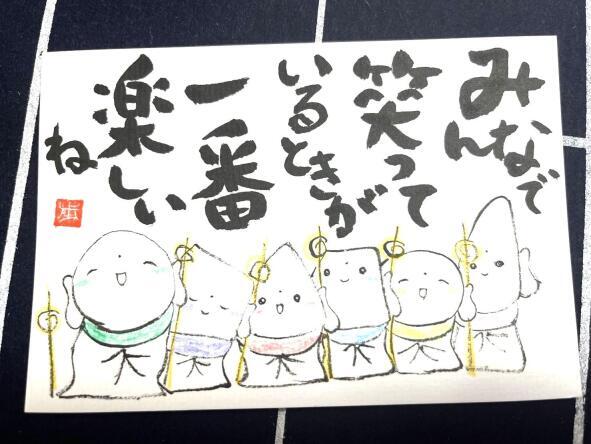 みんなで
笑って
いるときが
一番
楽しい
ね